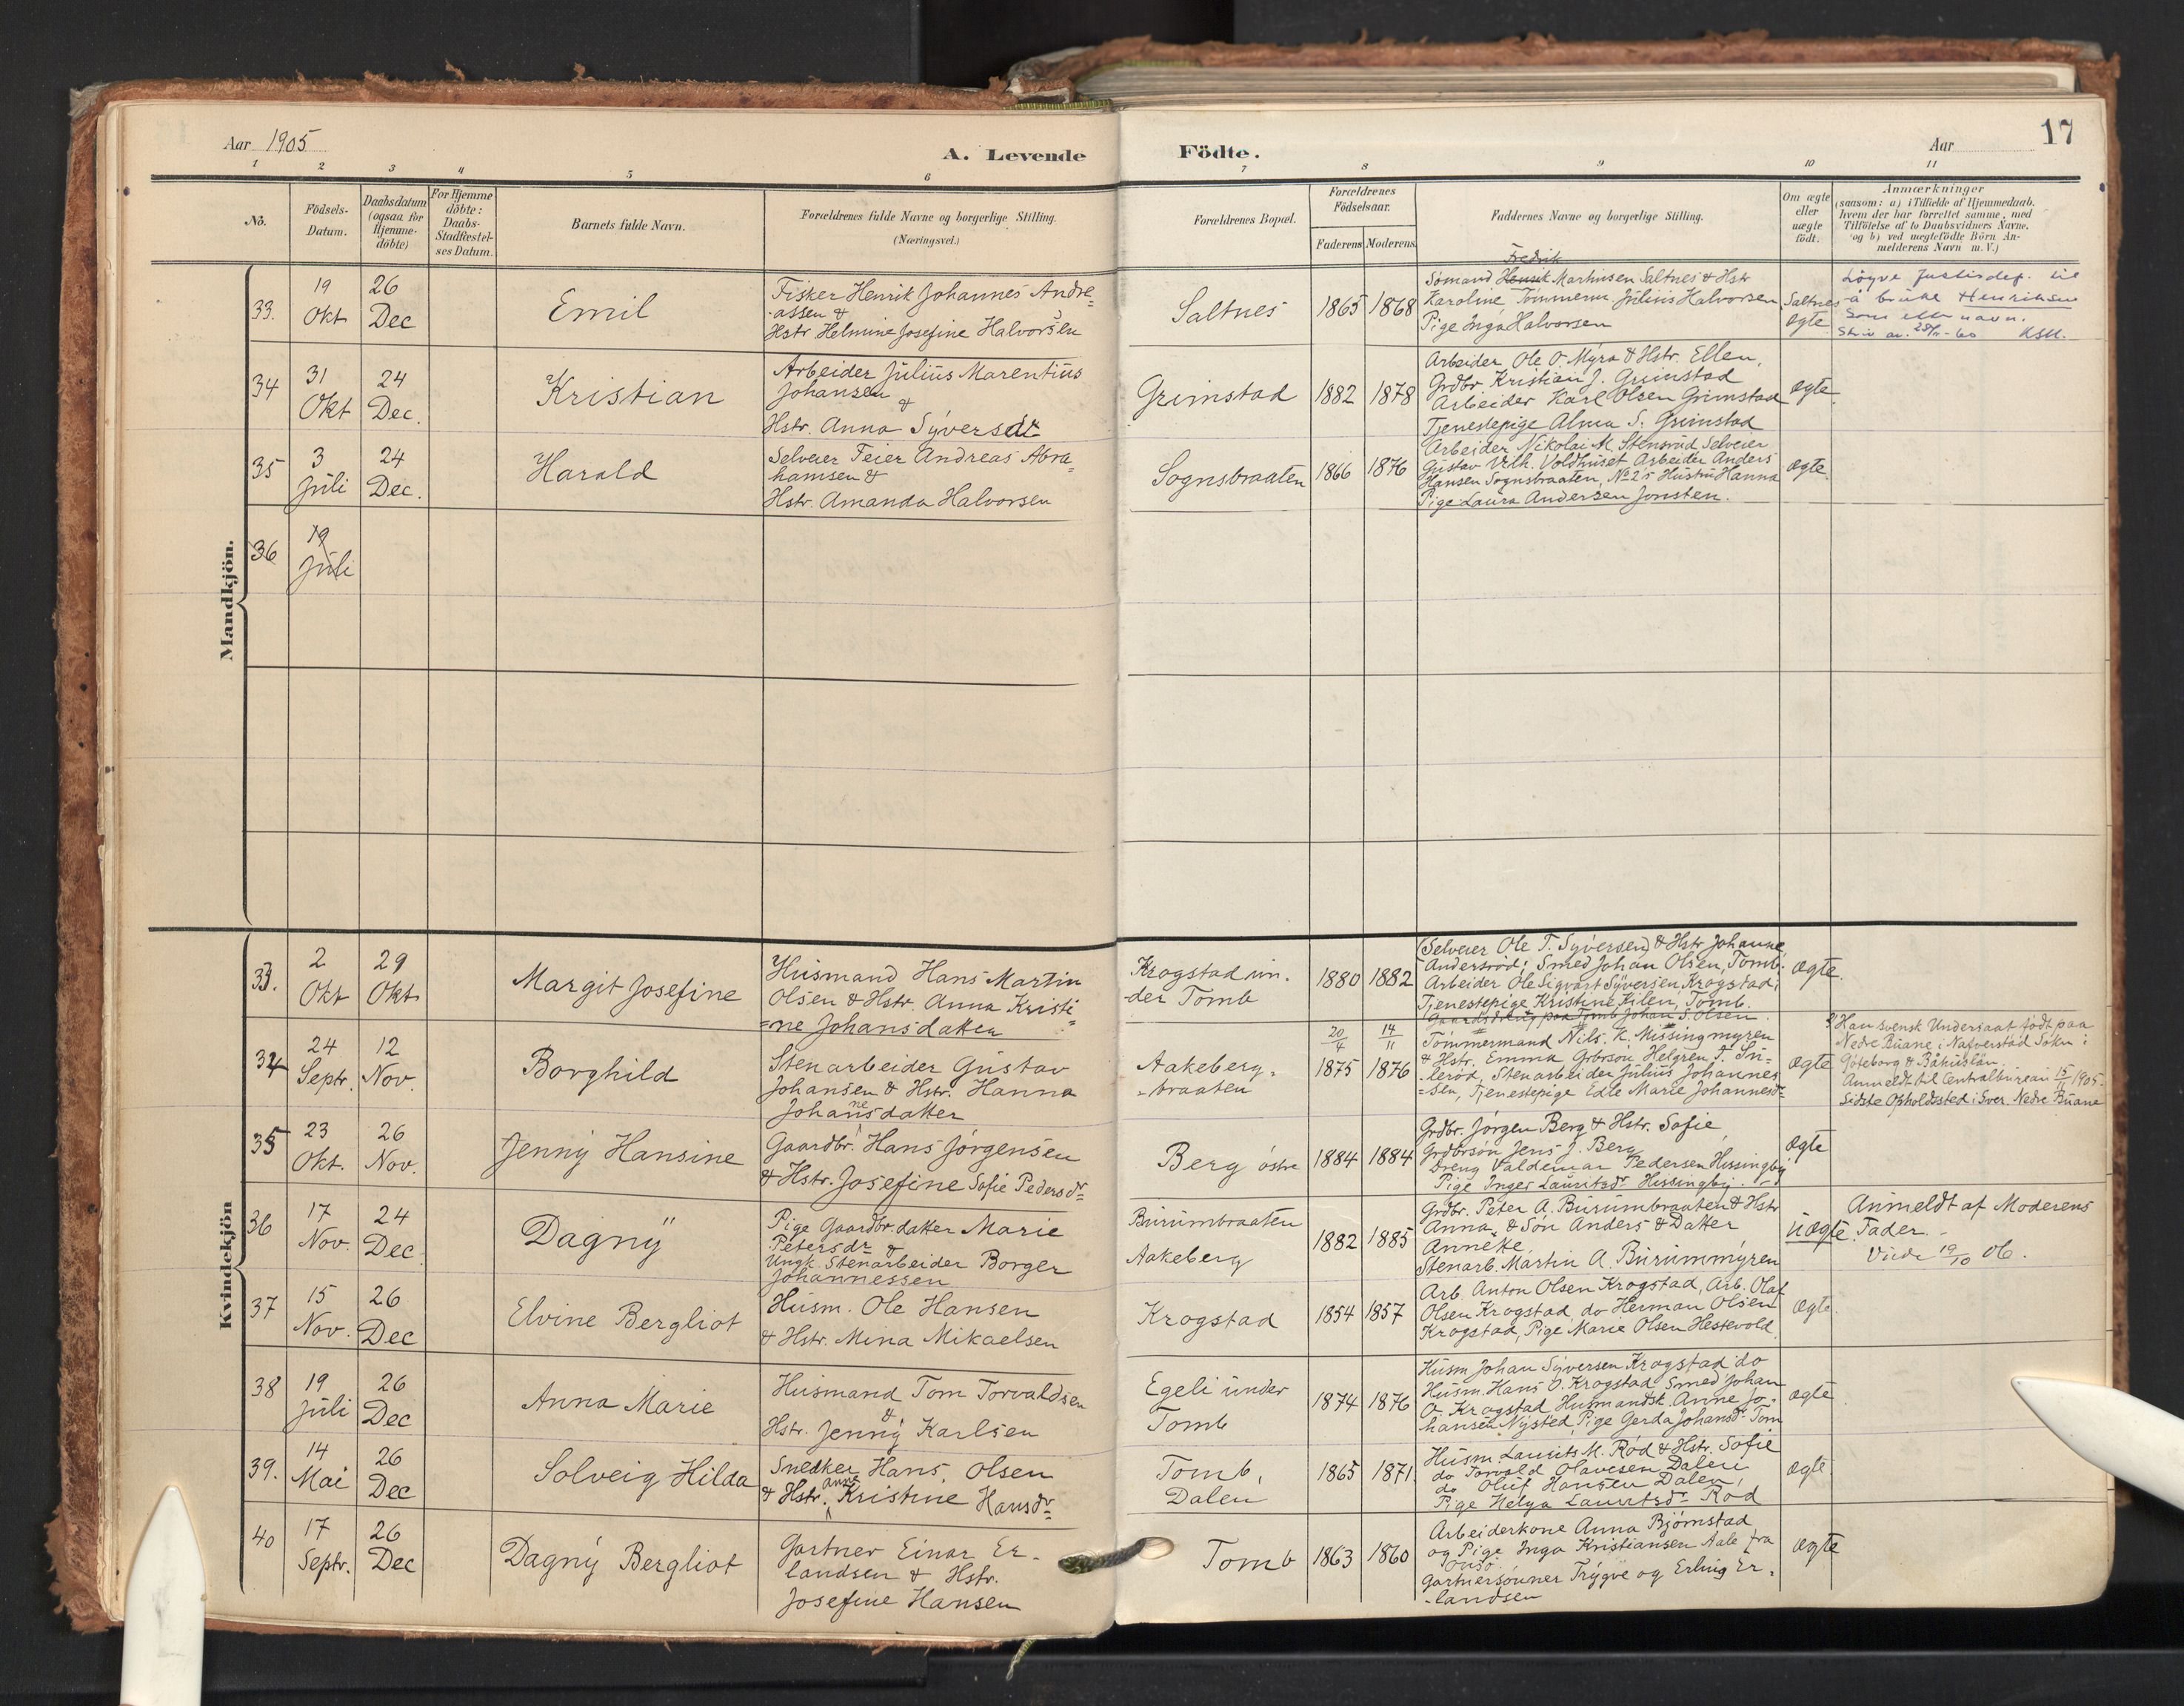 Aar 1905
A. Levende Födte.
Aar
17
1 2 3 4 5 6 7 8 9 10 11
No.
Födsels-Datum.
Daabsdatum (ogsaa for Hjemme-döbte)
For Hjemme döbte: Daabs-Stadfæstel-ses Datum.
Barnets fulde Navn.
Forældrenes fulde Navne og borgerlige Stilling.
(Næringsvei.)
Forældrenes Bopæl.
Forældrenes Födselsaar.
Faderens Moderens
Faddernes Navne og borgerlige Stilling.
Om ægte eller uægte födt.
Anmærkninger
(saasom: a) i Tilfælde af Hjemmedaab.
hvem der har forrettet samme, med
Tilföielse af to Daabsvidners Navne.
og b) ved uægtefödte Börn An-
melderens Navn m. V.)
Mandkjön.
33.
19 Okt
26 Dec
Emil
Fisker Henrik Johannes Andre=
assen &
Hstr Helmine Josefine Halvorsen
Saltnes
1865
1868
Fredrik
Sömand Henrik Marthinsen Saltnes & Hstr
Karoline, Tömmerm Julius Halvorsen Saltnes
Pige Inga Halvorsen
ægte
Löyve Justisdep. til
å bruke Henriksen
som etternavn.
34
31 Okt
24 Dec.
Kristian
Arbeider Julius Marentius
Johansen
&
Hstr. Anna Syversdt
Grimstad
1882
1878
Arbeider Ole O Myra & Hstr. Ellen,
Grdbr Kristian J. Grimstad
Arbeider Karl Olsen Grimstad
Tjenestepige Alma S. Grimstad
ægte.
35
3 Juli
24 Dec.
Harald
Selveier Feier Andreas Abra=
hamsen &
Hstr. Amanda Halvorsen
Sognsbraaten
1866
1876
Arbeider Nikolai M. Stensrud Selveier
Gustav Vilh. Voldhuset Arbeider Anders
Hansen Sognsbraaten, No 2's Hustru Hanna
Pige Laura Andersen Jonsten.
ægte.
36
19 Juli
Kvindekjön
33.
2 Okt
29 Okt
Margit Josefine
Husmand Hans Martin
Olsen & Hstr. Anna Kristi=
=ne Johansdatter
Krogstad un.
der Tomb
1880
1882
Selveier Ole T. Syversen & Hstr Johanne
Andersröd; Smed Johan Olsen, Tomb.
Arbeider Ole Sigvart Syversen, Krogstad;
Tjenestepige Kristine Kilen, Tomb.
Gaardsdreng paa Tomb Johan S. Olsen.
ægte.
34
24 Septr.
12 Nov.
Borghild
Stenarbeider Gustav
Johansen & Hstr. Hanna
Johannesdatter
Aakeberg-
-braaten
20/4 1875
14/11 1876
Tömmermand Nils. K. Missingmyren
& Hstr. Emma Grbrsön Helgren T. Su=
=leröd, Stenarbeider Julius Johannes
=sen, Tjenestepige Edle Marie Johannesdr
ægte
Han svensk Undersaat födt paa
Nedre Buane i Nafverstad Sokn i
Göteborg & Båhuslän
Anmeldt til Centralbureau 15/11 1905.
Sidste Opholdssted i Sver. Nedre Buane
35
23 Okt.
26 Nov.
Jenny Hansine
Gaardbr. Hans Jörgensen
& Hstr. Josefine Sofie Pedersdr
Berg östre
1884
1884
Grdbr. Jörgen Berg & Hstr. Sofie,
Grdbrsön Jens J. Berg
Dreng Valdemar Pedersen Hissingby
Pige Inger Lauritsdr Hissingby
ægte
36
17 Nov.
24 Dec.
Dagny
Pige Gaardbr.datter Marie
Petersdr &
Ungk. Stenarbeider Borger
Johannessen
Burumbraaten
Aakeberg
1882
1885
Grdbr. Peter A. Burumbraaten & Hstr
Anna, & Sön Anders & Datter
Annette,
Stenarb. Martin A. Burummyren
uægte.
Anmeldt af Moderens
Fader.
Vide 19/10 06.
37
15 Nov.
26 Dec
Elvine Bergliot
Husm. Ole Hansen
& Hstr. Mina Mikaelsen
Krogstad
1854
1857
Arb. Anton Olsen Krogstad, Arb. Olaf
Olsen Krogstad, do Herman Olsen
Krogstad, Pige Marie Olsen Hestevold
ægte.
38
19 Juli
26 Dec
Anna Marie
Husmand Tom Torvaldsen
&
Hstr. Jenny Karlsen
Egeli under
Tomb
1874
1876
Husm Johan Syversen Krogstad do
Husm. Hans O. Krogstad Smed Johan
O. Krogstad Husmandsk. Anne Jo-
hansen Nysted, Pige Gerda Johansdr Tom
ægte
39.
14 Mai
26 Dec
Solveig Hilda
Snedker Hans Olsen
& Hstr. Anne Kristine Hansdr
Tomb,
Dalen
1865
1871.
Husm Laurits M. Röd & Hstr. Sofie
do Torvald Olavesen Dalen
do Oluf Hansen Dalen,
Pige Helga Lauritsdr Röd
ægte
40
17 Septr.
26 Dec
Dagny Bergliot
Gartner Einar Er-
landsen & Hstr.
Josefine Hansen
Tomb
1863
1860
Arbeiderkone Anna Björnstad
og Pige Inga Kristiansen Aale fra
Onsö.
Gartnersönner Trygve og Erling Er-
-landsen
ægte